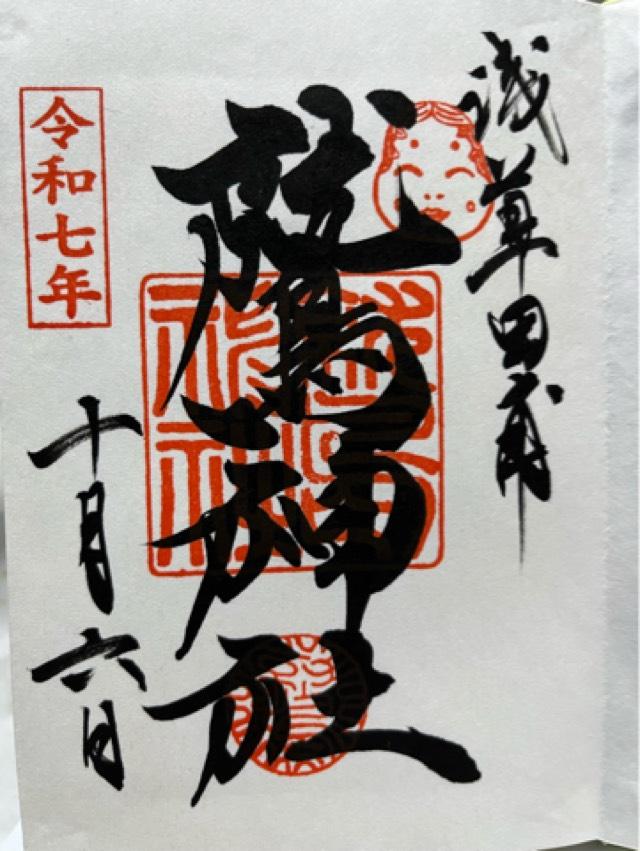 浅草田甫
鷲神社
令和七年
十月六日